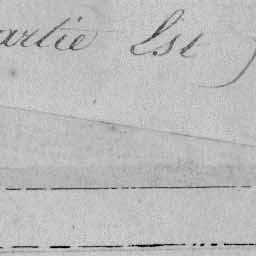 artie Est )